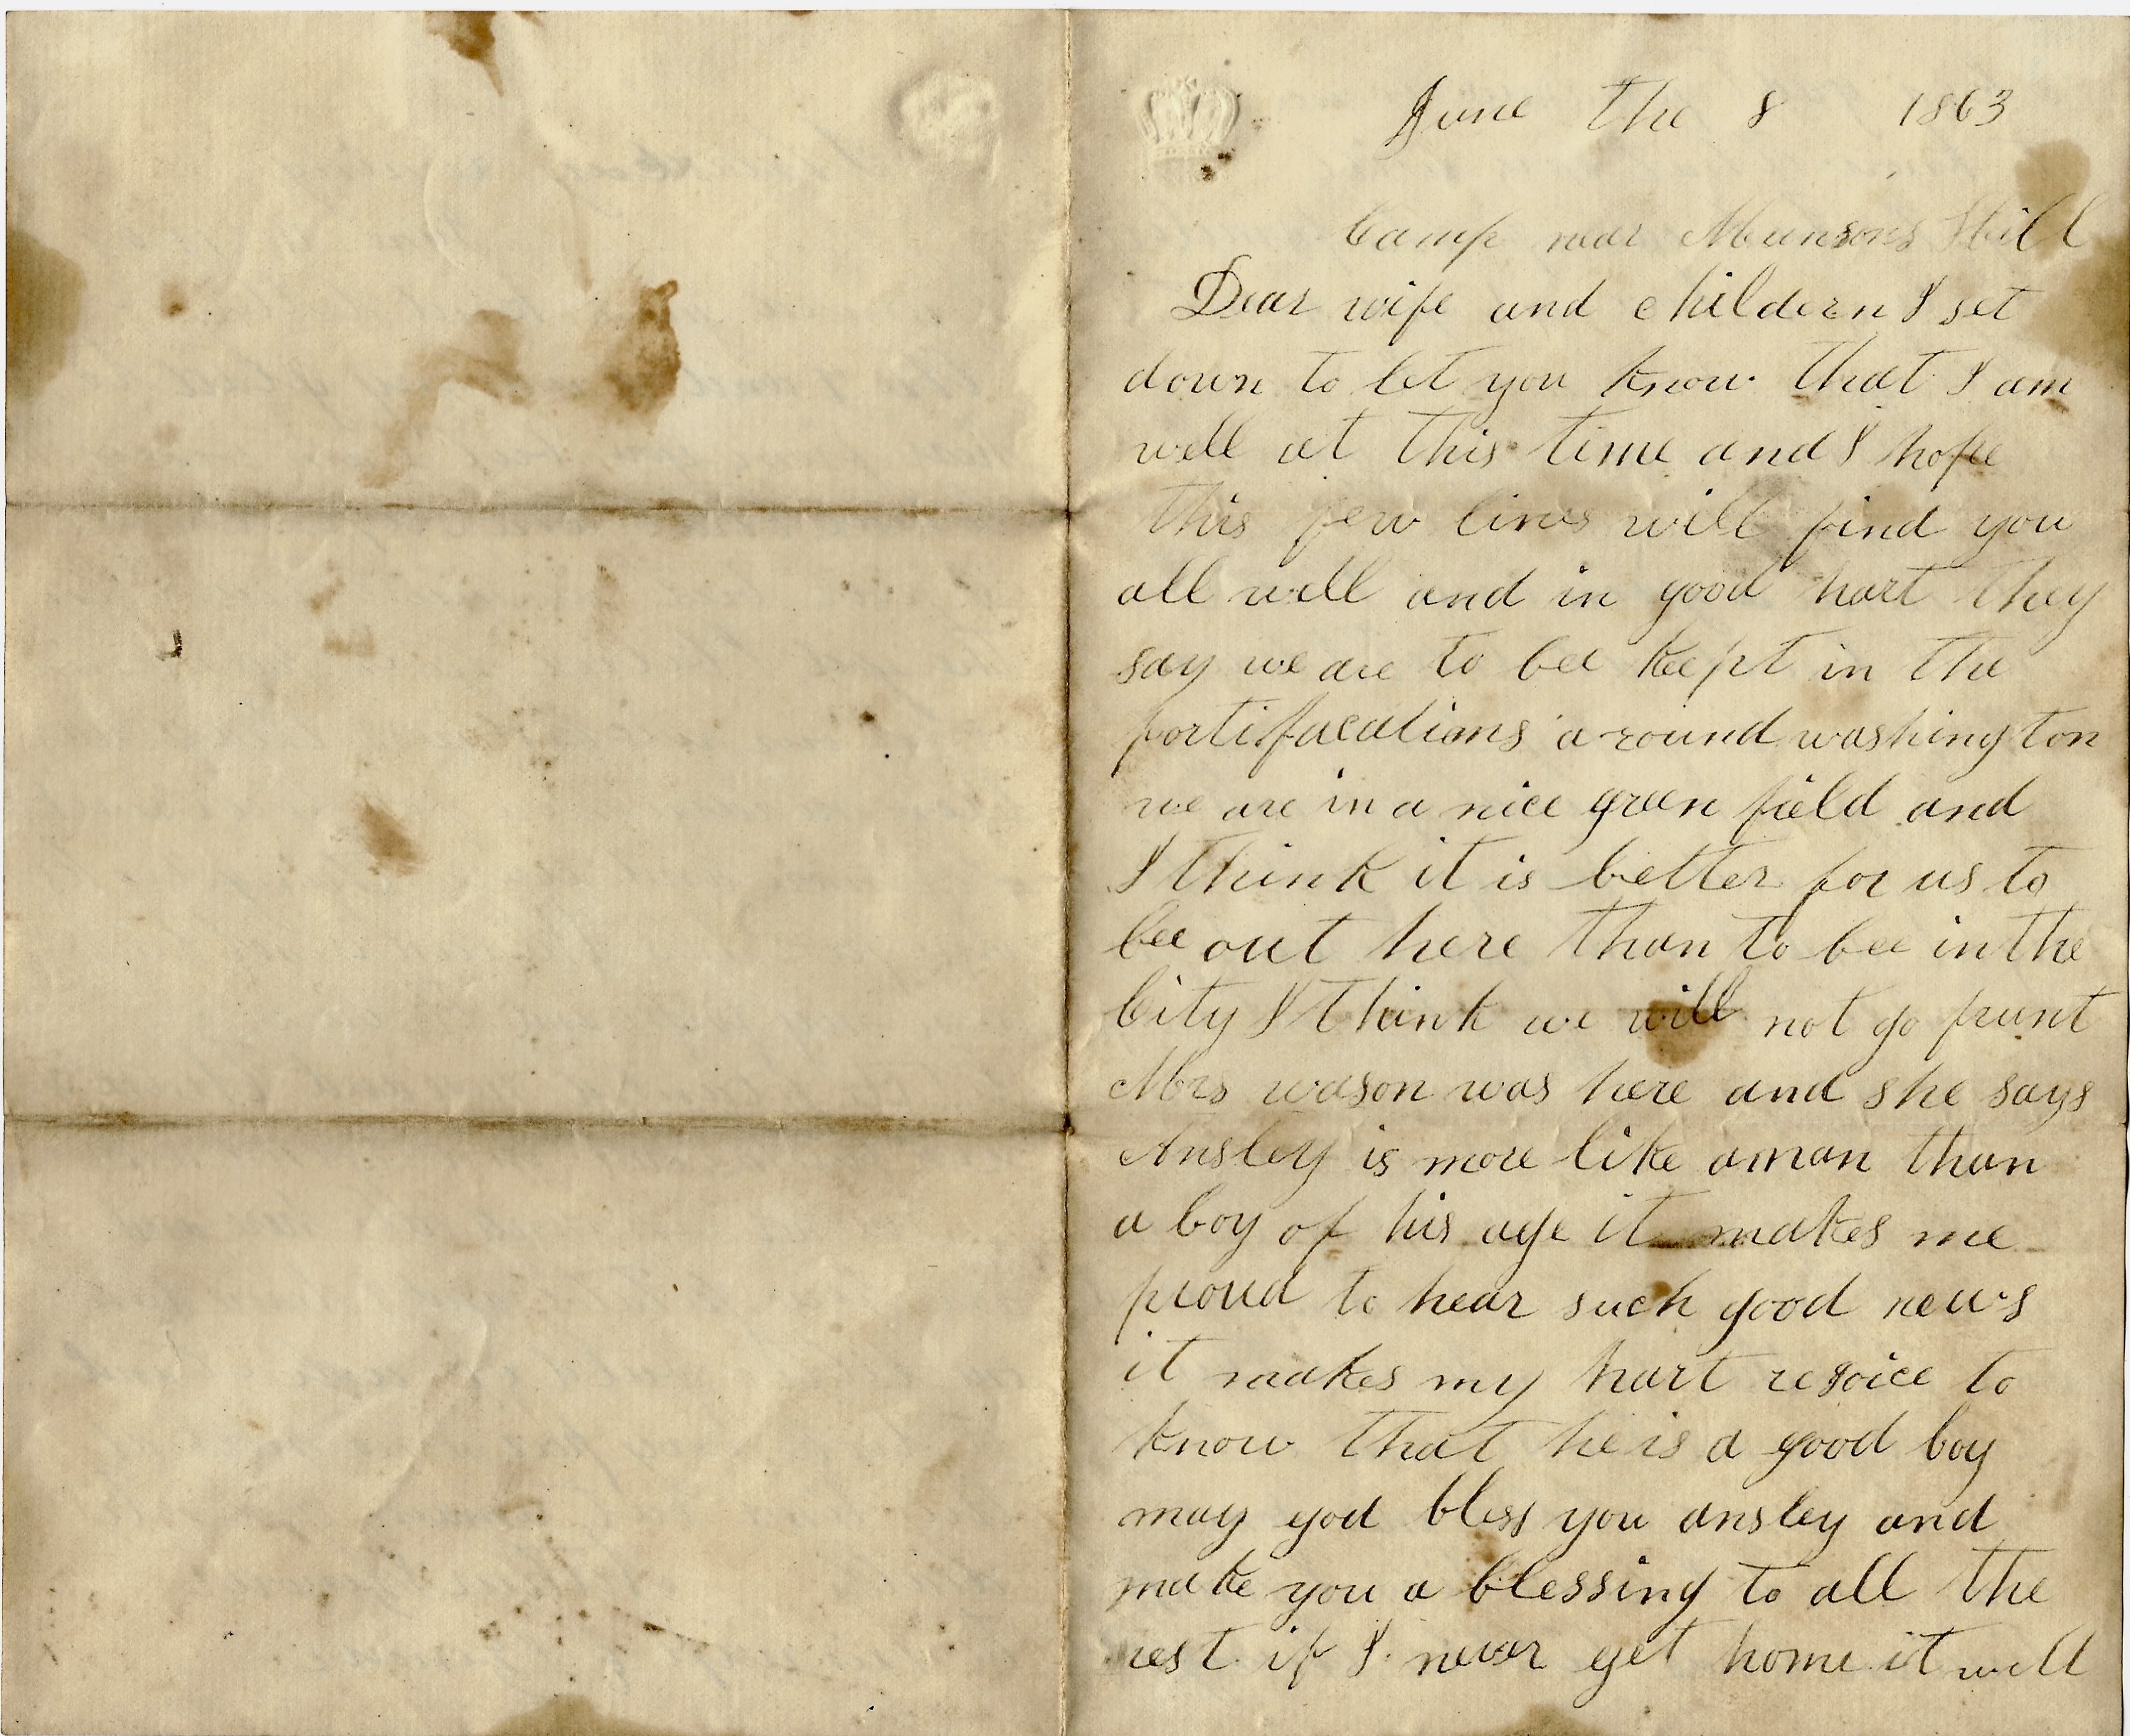 June the 8 1863
Camp near Munsons Hill
Dear wife and childern I set
down to let you know that I am
well at this time and I hope
this few lines will find you
all well and in good hart they
say we are to bee kept in the
fortifacations a round washington
we are in a nice green field and
I think it is better for us to
bee out here than to bee in the
City I think we will not go frunt
Mrs wason was here and she says
Ansley is more like a man than
a boy of his age it makes me
proud to hear such good news
it makes my hart rejoice to
know that he is a good boy
may god bless you ansley and
make you a blessing to all the
rest if I never get home it will